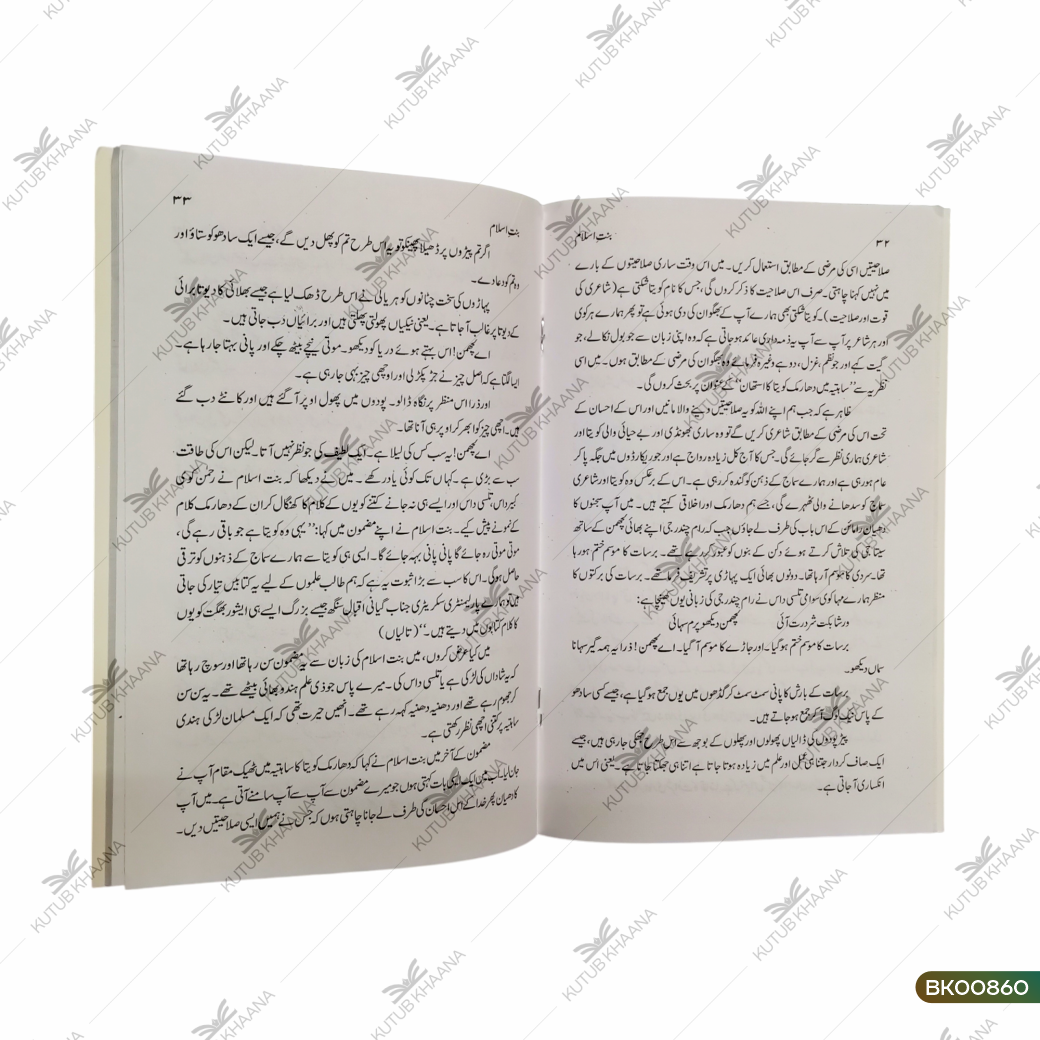 ۳۲
بنت اسلام
صلاحیتیں اسی کی مرضی کے مطابق استعمال کریں۔ میں اس وقت ساری صلاحیتوں کے بارے
میں نہیں کہنا چاہتی۔ صرف اس صلاحیت کا ذکر کروں گی، جس کا نام کویتا شکتی ہے (شاعری کی
قوت اور صلاحیت)۔ کویتا شکتی بھی ہمارے آپ کے بھگوان کی دی ہوئی ہے تو پھر ہمارے ہر کوی
اور ہر شاعر پر آپ سے آپ یہ ذمہ داری عائد ہو جاتی ہے کہ وہ اپنی زبان سے جو بول نکالے، جو
گیت کہے اور جو نظم، غزل، دوہے وغیرہ فرمائے وہ بھگوان کی مرضی کے مطابق ہوں۔ میں اسی
نظریہ سے ’’ساہتیہ میں دھارمک کویتا کا استھان‘‘ کے عنوان پر بحث کروں گی۔
ظاہر ہے کہ جب ہم اپنے اللہ کو یہ صلاحیتیں دینے والا مانیں اور اس کے احسان کے
تحت اس کی مرضی کے مطابق شاعری کریں گے تو وہ ساری بھونڈی اور بے حیائی والی کویتا اور
شاعری ہماری نظر سے گر جائے گی۔ جس کا آج کل زیادہ رواج ہے اور جو ریکارڈوں میں جگہ پا کر
عام ہو رہی ہے اور ہمارے سماج کے ذہن کو گندہ کر رہی ہے۔ اس کے برعکس وہ کویتا اور شاعری
سماج کو سدھانے والی ٹھہرے گی، جسے ہم دھارمک اور اخلاقی کہتے ہیں۔ میں آپ سجنوں کا
دھیان رامائن کے اس باب کی طرف لے جاؤں جب کہ رام چندر جی اپنے بھائی لچھمن کے ساتھ
سیتا جی کی تلاش کرتے ہوئے دکن کے بنوں کو عبور کر رہے تھے۔ برسات کا موسم ختم ہو رہا
تھا۔ سردی کا موسم آ رہا تھا۔ دونوں بھائی ایک پہاڑی پر تشریف فرما تھے۔ برسات کی برکتوں کا
منظر ہمارے مہا کوی سوامی تلسی داس نے رام چندر جی کی زبانی یوں کھینچا ہے:
ورشا بکت شرورت آئی لچھمن دیکھو پرم سہائی
برسات کا موسم ختم ہو گیا۔ اور جاڑے کا موسم آ گیا۔ اے لچھمن! ذرا یہ ہمہ گیر سہانا
سماں دیکھو۔
برسات کے بارش کا پانی سمٹ سمٹ کر گڈھوں میں یوں جمع ہو گیا ہے، جیسے کسی سادھو
کے پاس نیک لوگ آ کر جمع ہو جاتے ہیں۔
پیڑ پودوں کی ڈالیاں پھولوں اور پھلوں کے بوجھ سے اس طرح جھکی جا رہی ہیں، جیسے
ایک صاف کردار جتنا ہی عمل اور علم میں زیادہ ہوتا جاتا ہے اتنا ہی جھکتا جاتا ہے۔ یعنی اس میں
انکساری آ جاتی ہے۔
۳۳
بنت اسلام
اگر تم پیڑوں پر ڈھیلا پھینکو تو یہ اس طرح تم کو پھل دیں گے، جیسے ایک سادھو کو ستاؤ اور
وہ تم کو دعا دے۔
پہاڑوں کی سخت چٹانوں کو ہریالی نے اس طرح ڈھک لیا ہے جیسے بھلائی کا دیوتا برائی
کے دیوتا پر غالب آ جاتا ہے۔ یعنی نیکیاں پھولتی پھلتی ہیں اور برائیاں دب جاتی ہیں۔
اے لچھمن! اس بہتے ہوئے دریا کو دیکھو۔ موتی نیچے بیٹھ چکے اور پانی بہتا جا رہا ہے۔
ایسا لگتا ہے کہ اصل چیز نے جڑ پکڑ لی اور اوچھی چیز بہی جا رہی ہے۔
اور ذرا اس منظر پر نگاہ ڈالو۔ پودوں میں پھول اوپر آ گئے ہیں اور کانٹے دب گئے
ہیں۔ اچھی چیز کو ابھر کر اوپر ہی آنا تھا۔
اے لچھمن! یہ سب کس کی لیلا ہے۔ ایک لطیف کی جو نظر نہیں آتا۔ لیکن اس کی طاقت
سب سے بڑی ہے۔ کہاں تک کوئی یاد رکھے۔ میں نے دیکھا کہ بنت اسلام نے رحمٰن کوی
کبیر داس، تلسی داس اور ایسے ہی نہ جانے کتنے کویوں کے کلام کا کھنگال کر ان کے دھارمک کلام
کے نمونے پیش کیے۔ بنت اسلام نے اپنے مضمون میں کہا: ’’یہی وہ کویتا ہے جو باقی رہے گی،
موتی موتی رہ جائے گا پانی پانی بہہ جائے گا۔ ایسی ہی کویتا سے ہمارے سماج کے ذہنوں کو ترقی
حاصل ہوگی۔ اس کا سب سے بڑا ثبوت یہ ہے کہ ہم طالب علموں کے لیے یہ کتابیں تیار کی جاتی
ہیں تو ہمارے پارلیمنٹری سکریٹری جناب گیانی اقبال سنگھ جیسے بزرگ ایسے ہی ایشور بھگت کویوں
کا کلام کتابوں میں دیتے ہیں۔‘‘ (تالیاں)
میں کیا عرض کروں، میں بنت اسلام کی زبان سے یہ مضمون سن رہا تھا اور سوچ رہا تھا
کہ یہ شاداں کی لڑکی ہے یا تلسی داس کی۔ میرے پاس جو ذی علم ہندو بھائی بیٹھے تھے۔ یہ سن سن
کر جھوم رہے تھے اور دھنیہ دھنیہ کہہ رہے تھے۔ انھیں حیرت تھی کہ ایک مسلمان لڑکی ہندی
ساہتیہ پر کتنی اچھی نظر رکھتی ہے۔
مضمون کے آخر میں بنت اسلام نے کہا کہ دھارمک کویتا کا ساہتیہ میں ٹھیک مقام آپ نے
جان لیا۔ اب میں ایک ایسی بات کہتی ہوں جو میرے مضمون سے آپ سے آپ سامنے آتی ہے۔ میں آپ
کا دھیان پھر خدا کے اس احسان کی طرف لے جانا چاہتی ہوں کہ جس نے ہمیں ایسی صلاحیتیں دیں۔
KUTUB KHAANA
BK00860